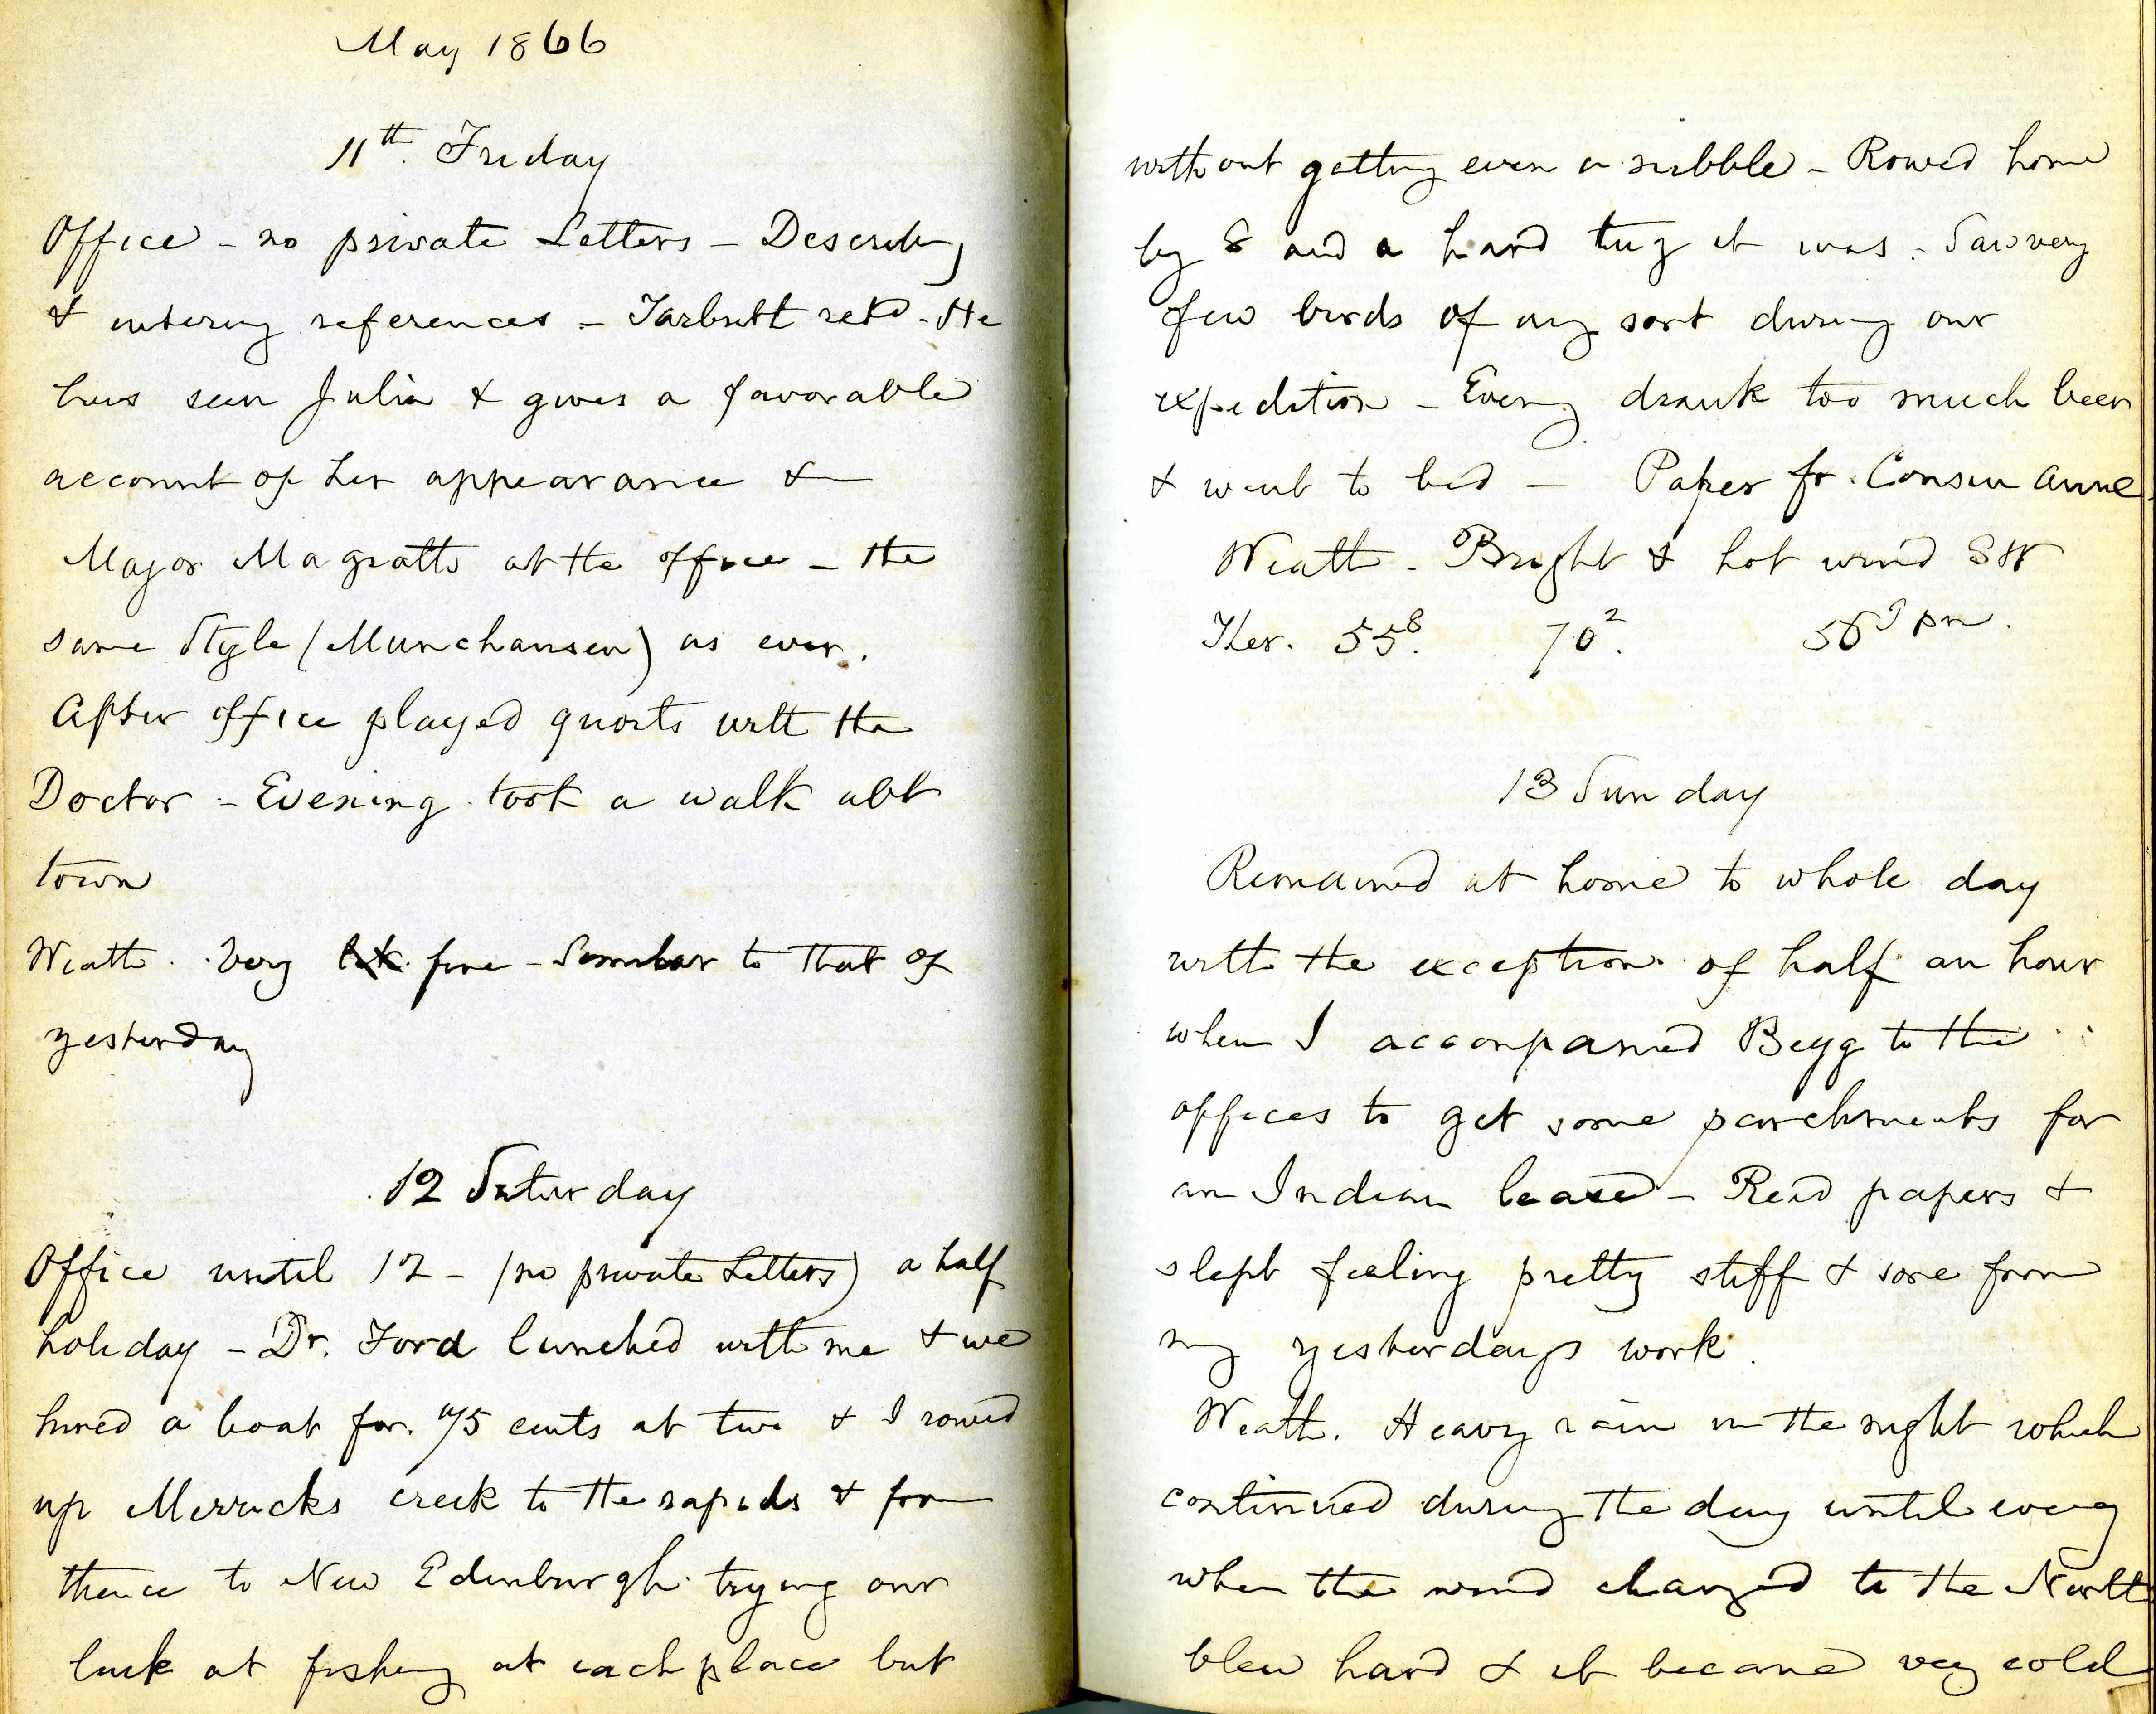 May 1866
11th. Friday
Office - no private Letters - Describing
& entering references - Tarbutt retd. He
has seen Julia & gives a favorable
account of her appearance &
Major Magrath at the office - the
same Style (Munchausen) as ever.
After office played quoits with the
Doctor - Evening took a walk abt
town
Weath. Very fine - Similar to that of
yesterday
12 Saturday
Office until 12 - (no private Letters) a half
holiday - Dr. Ford lunched with me & we
hired a boat for 75 cents at two & I rowed
up Merricks creek to the rapids & from
thence to New Edinburgh trying our
luck at fishing at each place but
without getting even a nibble - Rowed home
by 8 and a hard tug it was. Saw very
few birds of any sort during our
expedition - Eveng drank too much beer
& went to bed - Paper fr. Cousin Anne.
Weath. Bright & hot wind SW
Ther. 55 8. 70 2. 56 9 pm.
13 Sunday
Remained at home to whole day
with the exception of half an hour
when I accompanied Begg to the
offices to get some parchments for
an Indian lease - Read papers &
slept feeling pretty stiff & sore from
my yesterdays work.
Weath. Heavy rain in the night which
continued during the day until eveng
when the wind changed to the North
blew hard & it became very cold